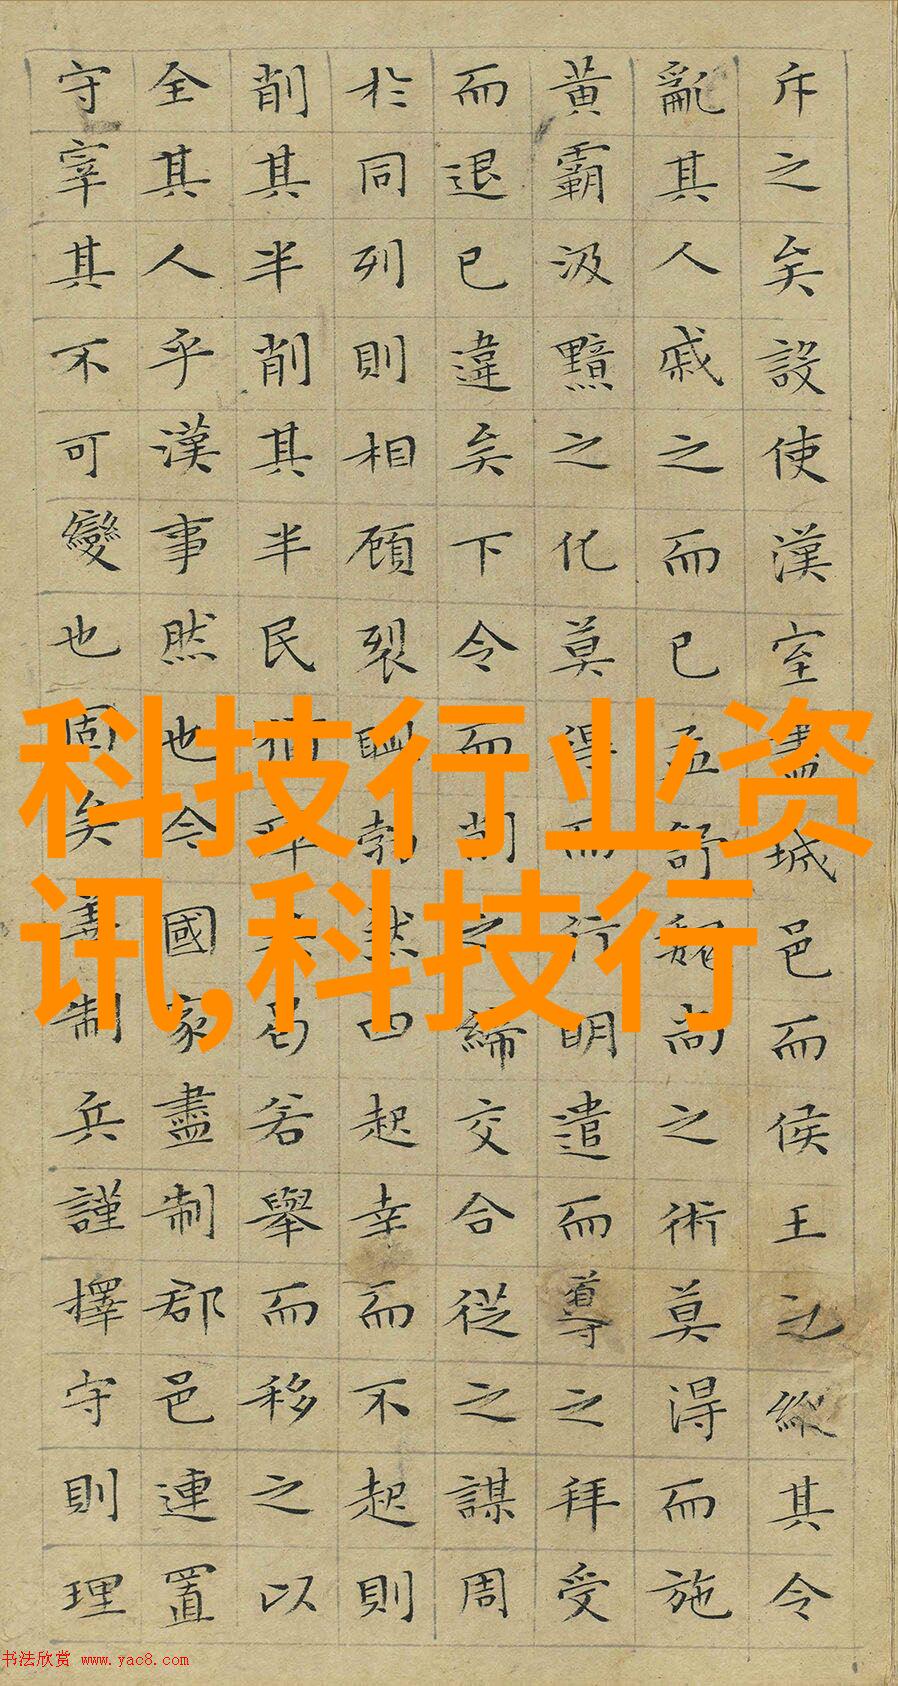 斥之矣設使漢室盡城邑而侯王之縱其令
亂其人戚之而已孟舒魏尚之術莫得而施
黃霸汲黯之化莫得而行明遣而導之拜受
而退已違矣下令而削之締交合從之謀周
於同列則相顧裂眦勃然四起幸而不起則
削其半削其半民猶瘁矣曷若舉而移之以
全其人乎漢事然也今國家盡制郡邑連置
守宰其不可變也固矣善制兵謹擇守則理
科技行业资
讯,科技行
书法欣赏 www.yac8.com